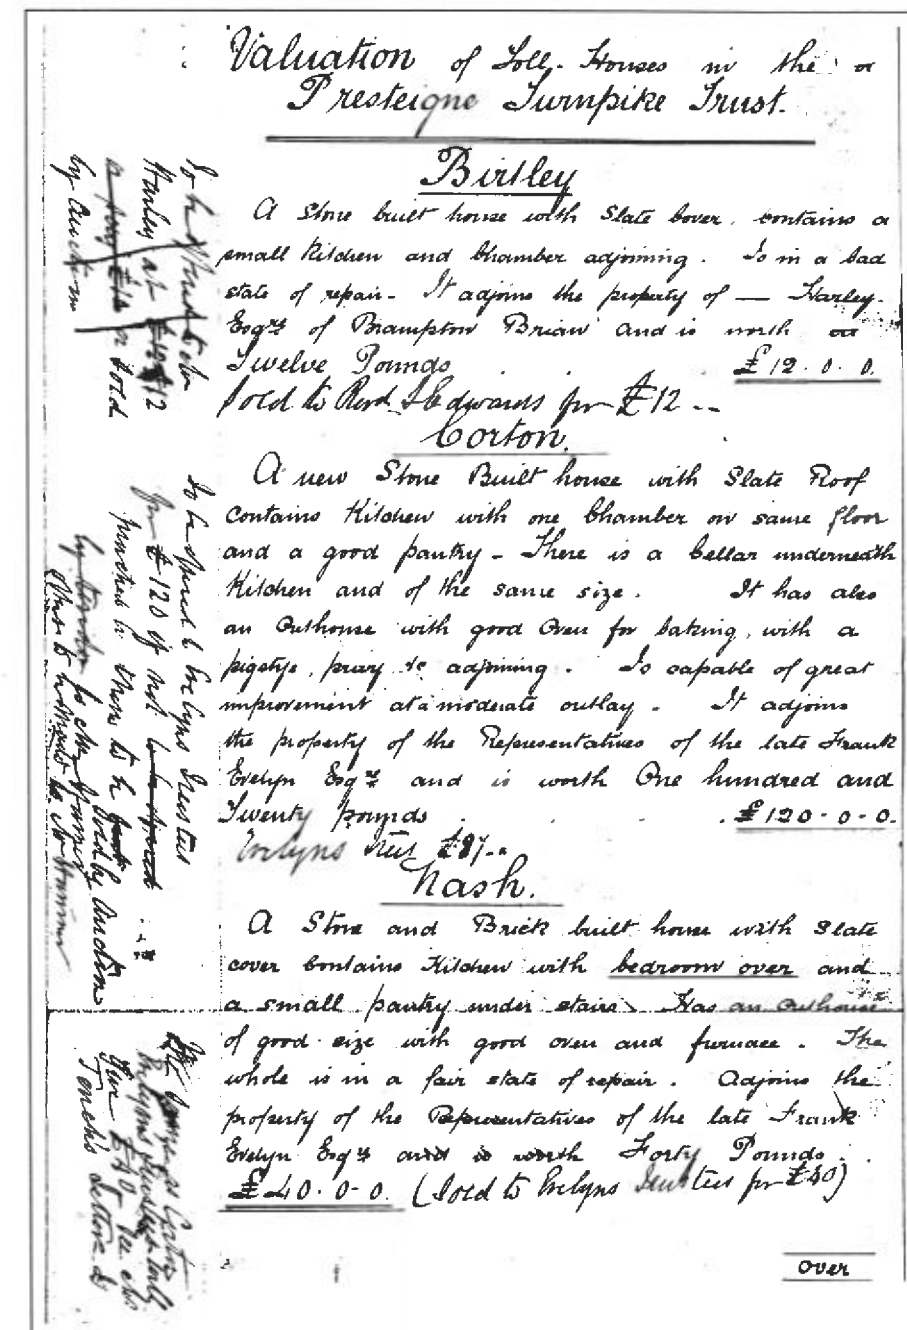 Valuation of Toll-Houses in the
Presteigne Turnpike Trust.
Birtley
A Stone built house with Slate Cover, contains a
small Kitchen and Chamber adjoining. Is in a bad
state of repair - It adjoins the property of — Harley
Esqre of Brampton Brian and is worth
Twelve Pounds . . £12.0.0.
Sold to Revd Edwards for £12 --
Corton.
A new Stone Built house with Slate Roof
Contains Kitchen with one Chamber on same floor
and a good pantry - There is a Cellar underneath
Kitchen and of the same size. It has also
an Outhouse with good Oven for baking, with a
pigstye, privy &c adjoining. Is capable of great
improvement at a moderate outlay. It adjoins
the property of the Representatives of the late Frank
Evelyn Esqre and is worth One hundred and
Twenty pounds . . . £120-0-0.
Evelyns
Nash.
A Stone and Brick built house with Slate
cover Contains Kitchen with bedroom over and
a small pantry under stairs. Has an Outhouse
of good size with good oven and furnace. The
whole is in a fair state of repair. Adjoins the
property of the Representatives of the late Frank
Evelyn Esqre and is worth Forty Pounds.
£40.0.0. (Sold to Evelyns Trustees for £40)
over
To be
Harley at £12
or sold
by auction
To be offered to Evelyns Trustees
for £120 if not
then to be sold by Auction
as Corton
Evelyns Trustees
£40